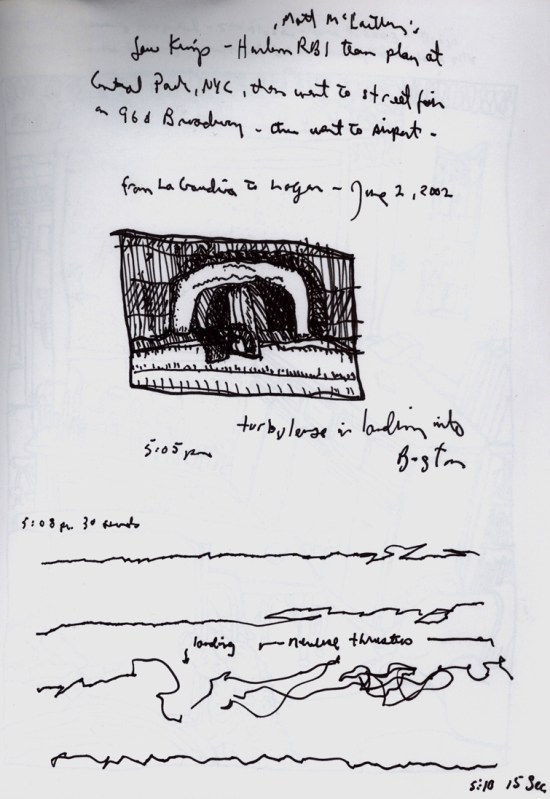 Matt McCarthy's
Saw Kings - Harlem RBI team play at
Central Park, NYC, then went to street fair
on 96 & Broadway - then went to airport -
from La Guardia to Logan - June 2, 2002
turbulense in landing into
Boston
5:05 pm
5:08 pm 30 seconds
landing
reverse thrusters
5:10 15 Sec